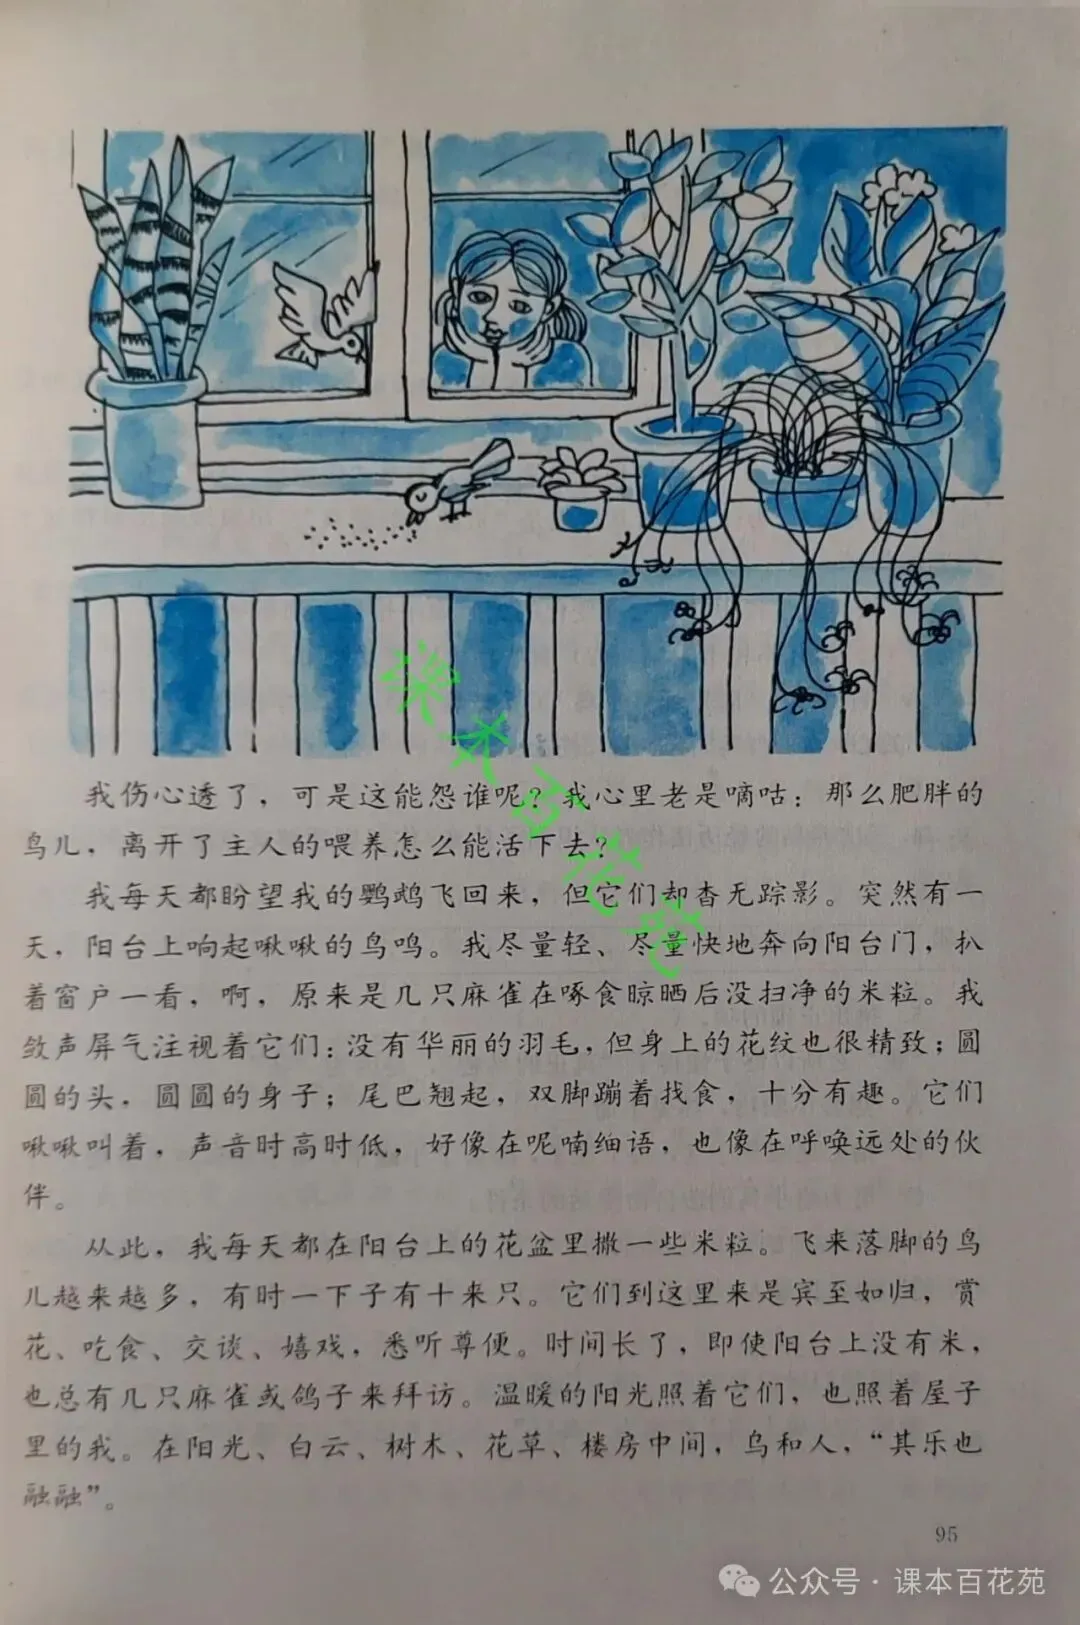 课本百花苑
我伤心透了，可是这能怨谁呢？我心里老是嘀咕：那么肥胖的
鸟儿，离开了主人的喂养怎么能活下去？
我每天都盼望我的鹦鹉飞回来，但它们却杳无踪影。突然有一
天，阳台上响起啾啾的鸟鸣。我尽量轻、尽量快地奔向阳台门，扒
着窗户一看，啊，原来是几只麻雀在啄食晾晒后没扫净的米粒。我
敛声屏气注视着它们：没有华丽的羽毛，但身上的花纹也很精致；圆
圆的头，圆圆的身子；尾巴翘起，双脚蹦着找食，十分有趣。它们
啾啾叫着，声音时高时低，好像在呢喃细语，也像在呼唤远处的伙
伴。
从此，我每天都在阳台上的花盆里撒一些米粒。飞来落脚的鸟
儿越来越多，有时一下子有十来只。它们到这里来是宾至如归，赏
花、吃食、交谈、嬉戏，悉听尊便。时间长了，即使阳台上没有米，
也总有几只麻雀或鸽子来拜访。温暖的阳光照着它们，也照着屋子
里的我。在阳光、白云、树木、花草、楼房中间，鸟和人，“其乐也
融融”。
95
公众号·课本百花苑